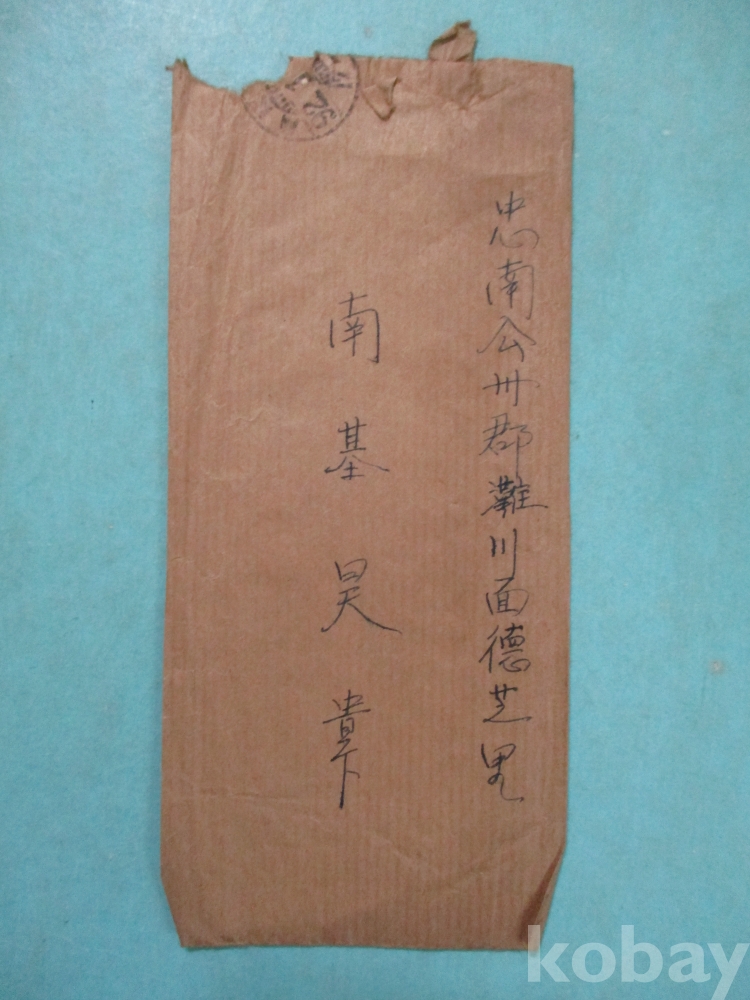 忠南公州郡灘川面德芝里
南基昊貴下
kobay